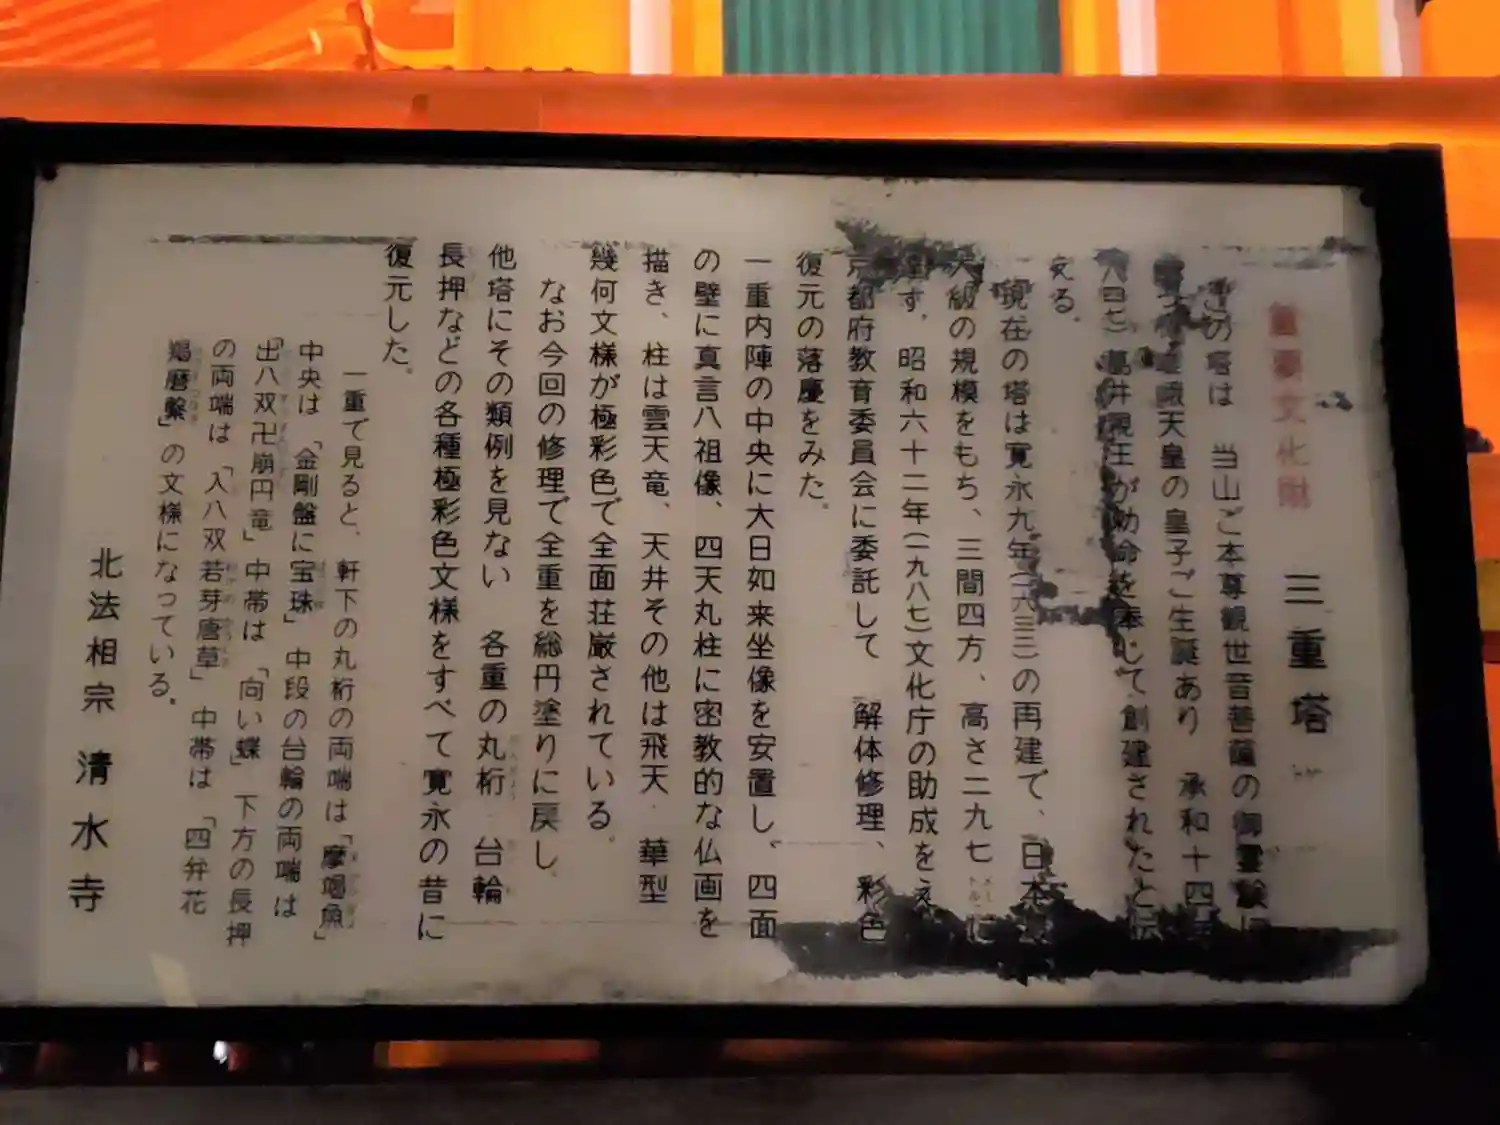 重要文化財 三重塔
この塔は 当山ご本尊観世音菩薩の御霊験に
嵯峨天皇の皇子ご生誕あり 承和十四年
葛井親王が勅命を奉じて創建されたと伝
える。
現在の塔は寛永九年(一六三三)の再建で、日本最
大級の規模をもち、三間四方、高さ二九七に
達す。昭和六十二年(一九八七)文化庁の助成をえ
京都府教育委員会に委託して 解体修理、彩色
復元の落慶をみた。
一重内陣の中央に大日如来坐像を安置し、四面
の壁に真言八祖像、四天丸柱に密教的な仏画を
描き、柱は雲天竜、天井その他は飛天 華型
幾何文様が極彩色で全面荘厳されている。
なお今回の修理で全重を総円塗りに戻し。
他塔にその類例を見ない 各重の丸桁 台輪
長押などの各種極彩色文様をすべて寛永の昔に
復元した。
一重で見ると、軒下の丸桁の両端は「摩竭魚」
中央は「金剛盤に宝珠」中段の台輪の両端は
「出八双卍崩円竜」中帯は「向い蝶」下方の長押
の両端は「入八双若芽唐草」中帯は「四弁花
羯磨繋」の文様になっている。
北法相宗 清水寺